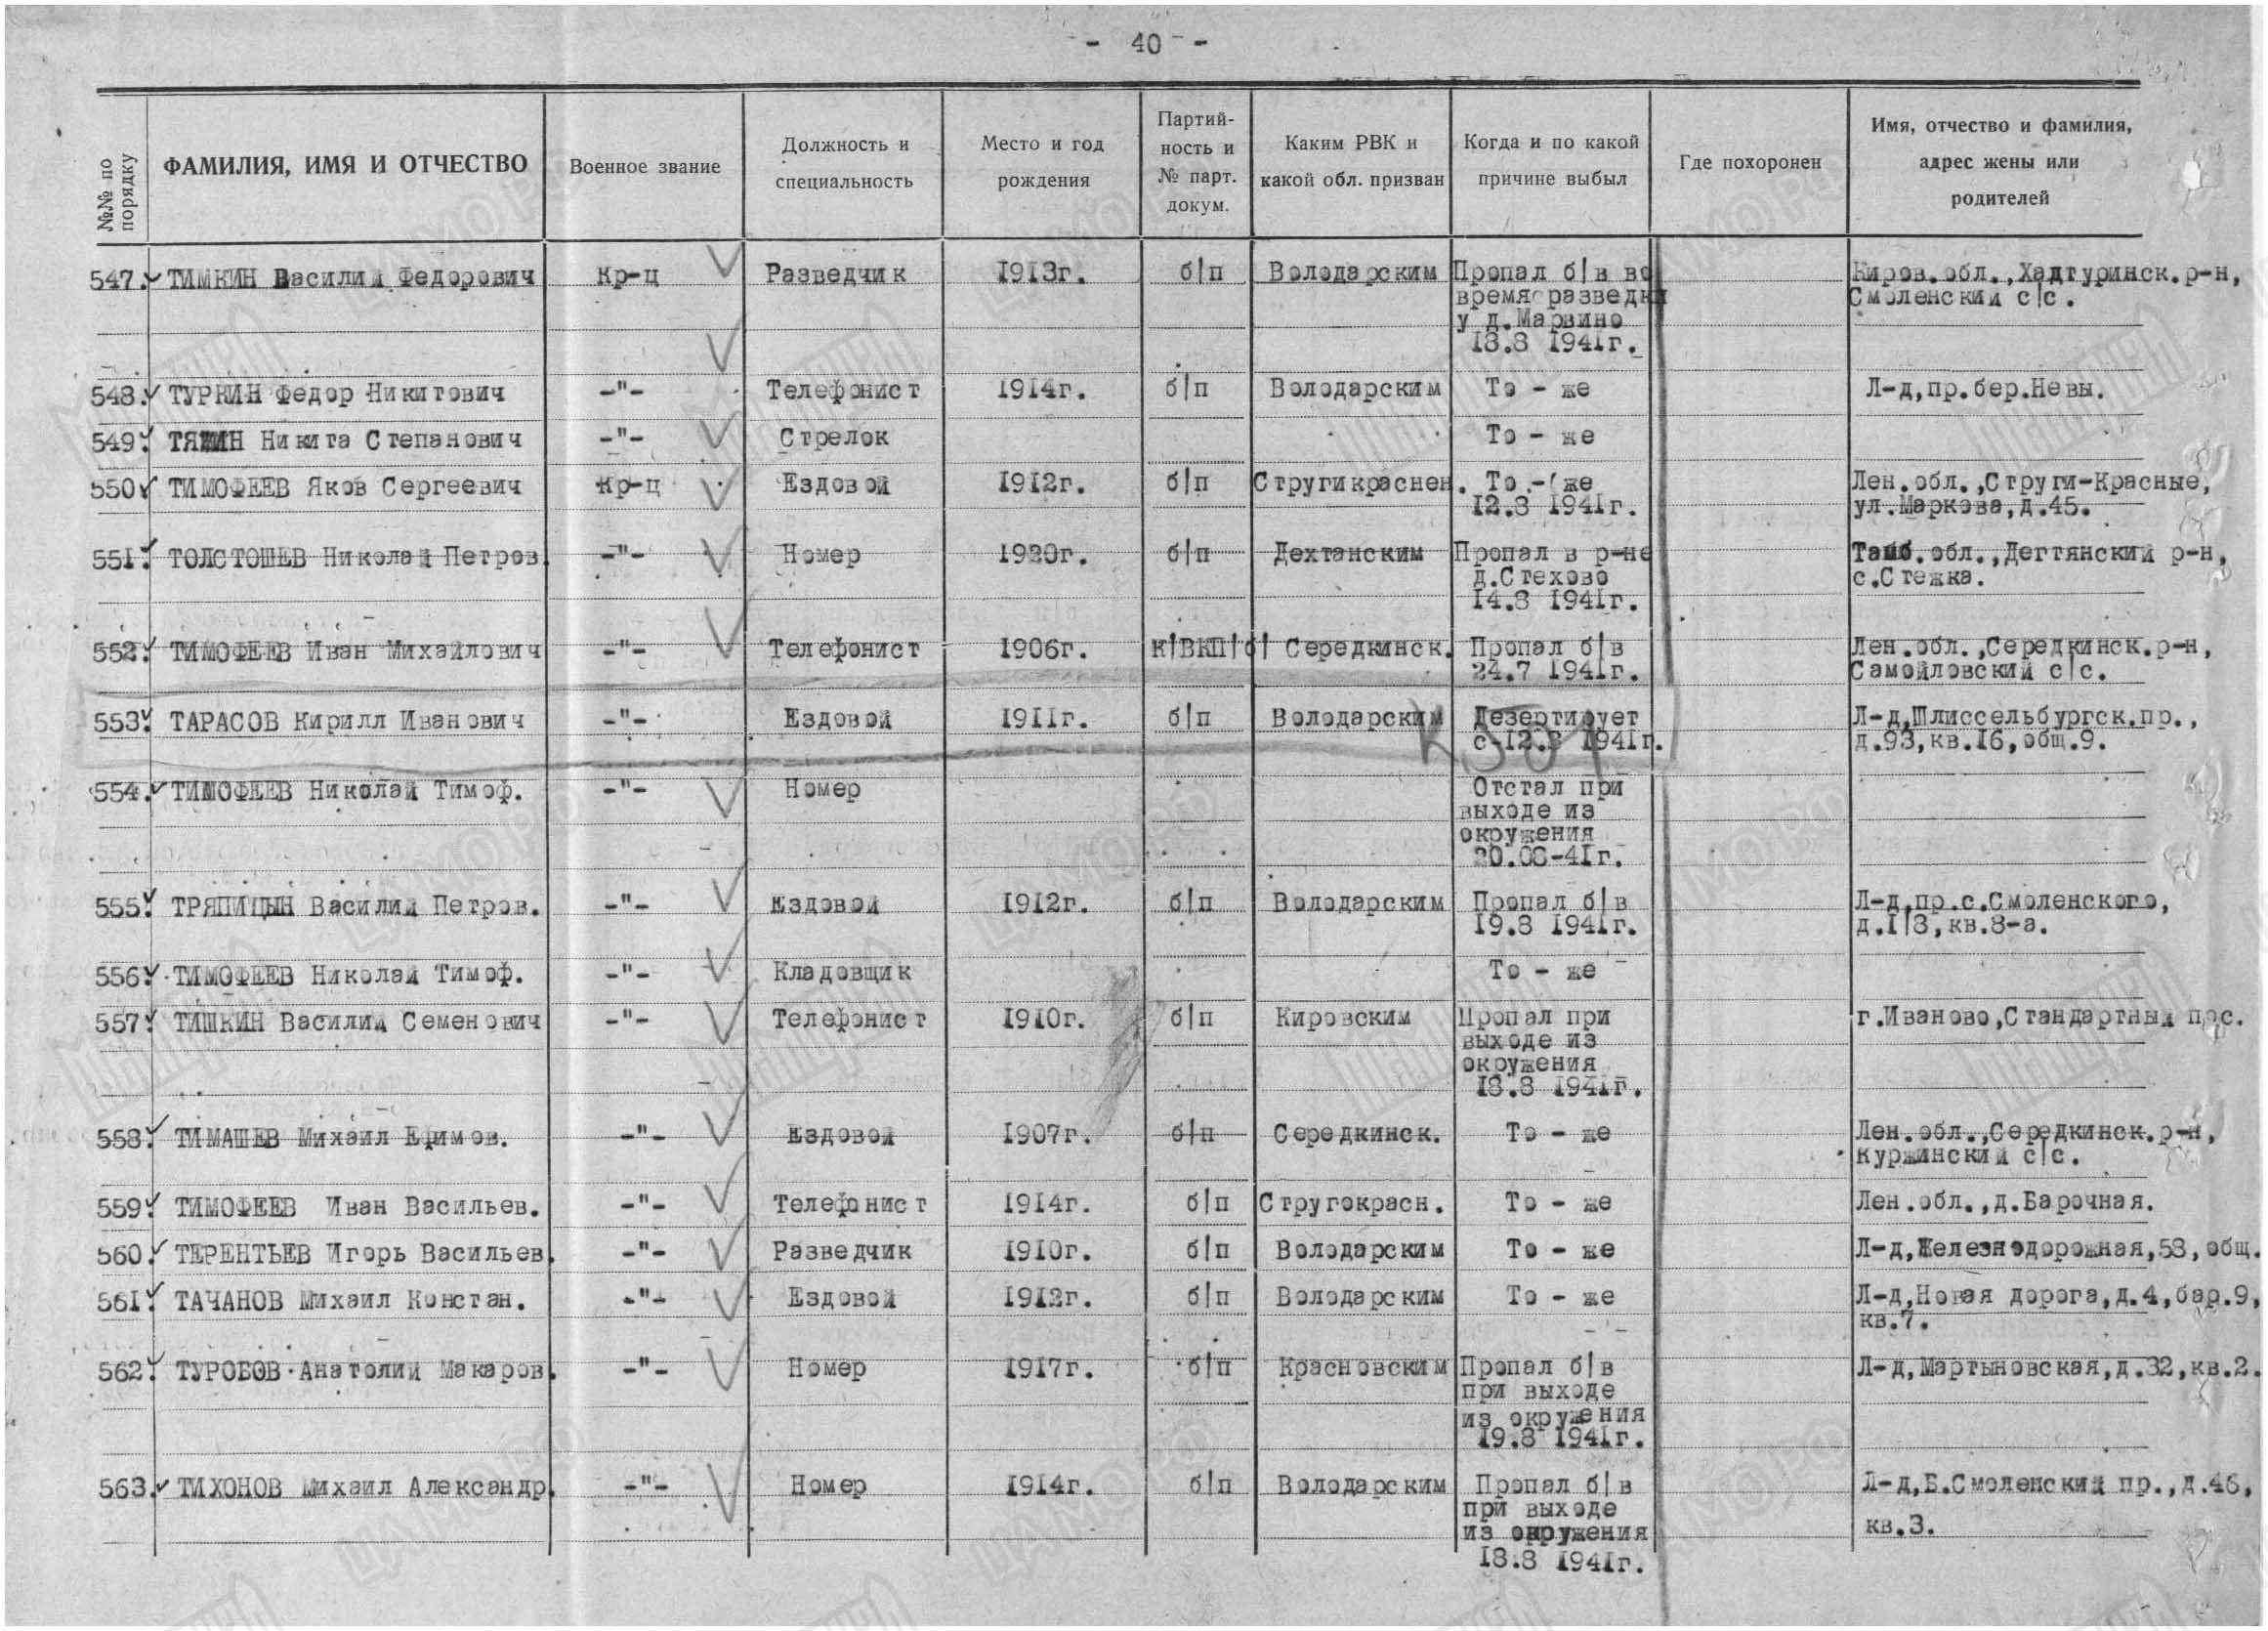 - 40 -
№№ по порядку
ФАМИЛИЯ, ИМЯ И ОТЧЕСТВО
Военное звание
Должность и
специальность
Место и год
рождения
Партий-
ность и
№ парт.
докум.
Каким РВК и
какой обл. призван
Когда и по какой
причине выбыл
Где похоронен
Имя, отчество и фамилия,
адрес жены или
родителей
547. ТИМКИН Василий Федорович кр-ц Разведчик 1913г. б/п Володарским Пропал б/в во Киров.обл.,Халтуринск.р-н,
время разведки Смоленский с/с.
у д.Марвино
18.8 1941г.
548. ТУРКИН Федор Никитович -"- Телефонист 1914г. б/п Володарским То - же Л-д,пр.бер.Невы.
549. ТЯЖИН Никита Степанович -"- Стрелок То - же
550. ТИМОФЕЕВ Яков Сергеевич кр-ц Ездовой 1912г. б/п Стругикраснен. То - же Лен.обл.,Струги-Красные,
12.8 1941г. ул.Маркова,д.45.
551. ТОЛСТОШЕВ Николай Петров. -"- Номер 1920г. б/п Дехтанским Пропал в р-не Тамб.обл.,Дегтянский р-н,
д.Стехово с.Стежка.
14.8 1941г.
552. ТИМОФЕЕВ Иван Михайлович -"- Телефонист 1906г. к/ВКП/б/ Середкинск. Пропал б/в Лен.обл.,Середкинск.р-н,
24.7 1941г. Самойловский с/с.
553. ТАРАСОВ Кирилл Иванович -"- Ездовой 1911г. б/п Володарским Дезертирует Л-д,Шлиссельбургск.пр.,
с 12.8 1941г. д.93,кв.16,общ.9.
554. ТИМОФЕЕВ Николай Тимоф. -"- Номер Отстал при
выходе из
окружения
20.08-41г.
555. ТРЯПИЦЫН Василий Петров. -"- Ездовой 1912г. б/п Володарским Пропал б/в Л-д,пр.с.Смоленского,
19.8 1941г. д.1/3,кв.8-а.
556. ТИМОФЕЕВ Николай Тимоф. -"- Кладовщик То - же
557. ТИШКИН Василий Семенович -"- Телефонист 1910г. б/п Кировским Пропал при г.Иваново,Стандартный пос.
выходе из
окружения
18.8 1941г.
558. ТИМАШЕВ Михаил Ефимов. -"- Ездовой 1907г. б/п Середкинск. То - же Лен.обл.,Середкинск.р-н,
куржинский с/с.
559. ТИМОФЕЕВ Иван Васильев. -"- Телефонист 1914г. б/п Стругокрасн. То - же Лен.обл.,д.Барочная.
560. ТЕРЕНТЬЕВ Игорь Васильев. -"- Разведчик 1910г. б/п Володарским То - же Л-д,Железнодорожная,53,общ.
561. ТАЧАНОВ Михаил Констан. -"- Ездовой 1912г. б/п Володарским То - же Л-д,Новая дорога,д.4,бар.9,
кв.7.
562. ТУРОБОВ Анатолий Макаров. -"- Номер 1917г. б/п Красновским Пропал б/в Л-д,Мартыновская,д.32,кв.2.
при выходе
из окружения
19.8 1941г.
563. ТИХОНОВ Михаил Александр. -"- Номер 1914г. б/п Володарским Пропал б/в Л-д,Б.Смоленский пр.,д.46,
при выходе кв.3.
из окружения
18.8 1941г.